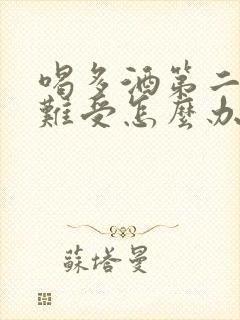 喝多酒第二
難受怎麼办
蘇塔曼